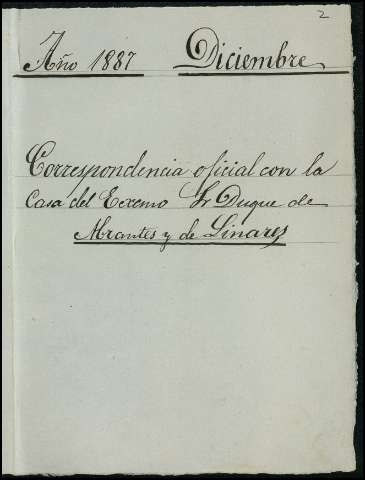 2
Año 1887 Diciembre
Correspondencia oficial con la
Casa del Excmo Sr Duque de
Abrantes y de Linares